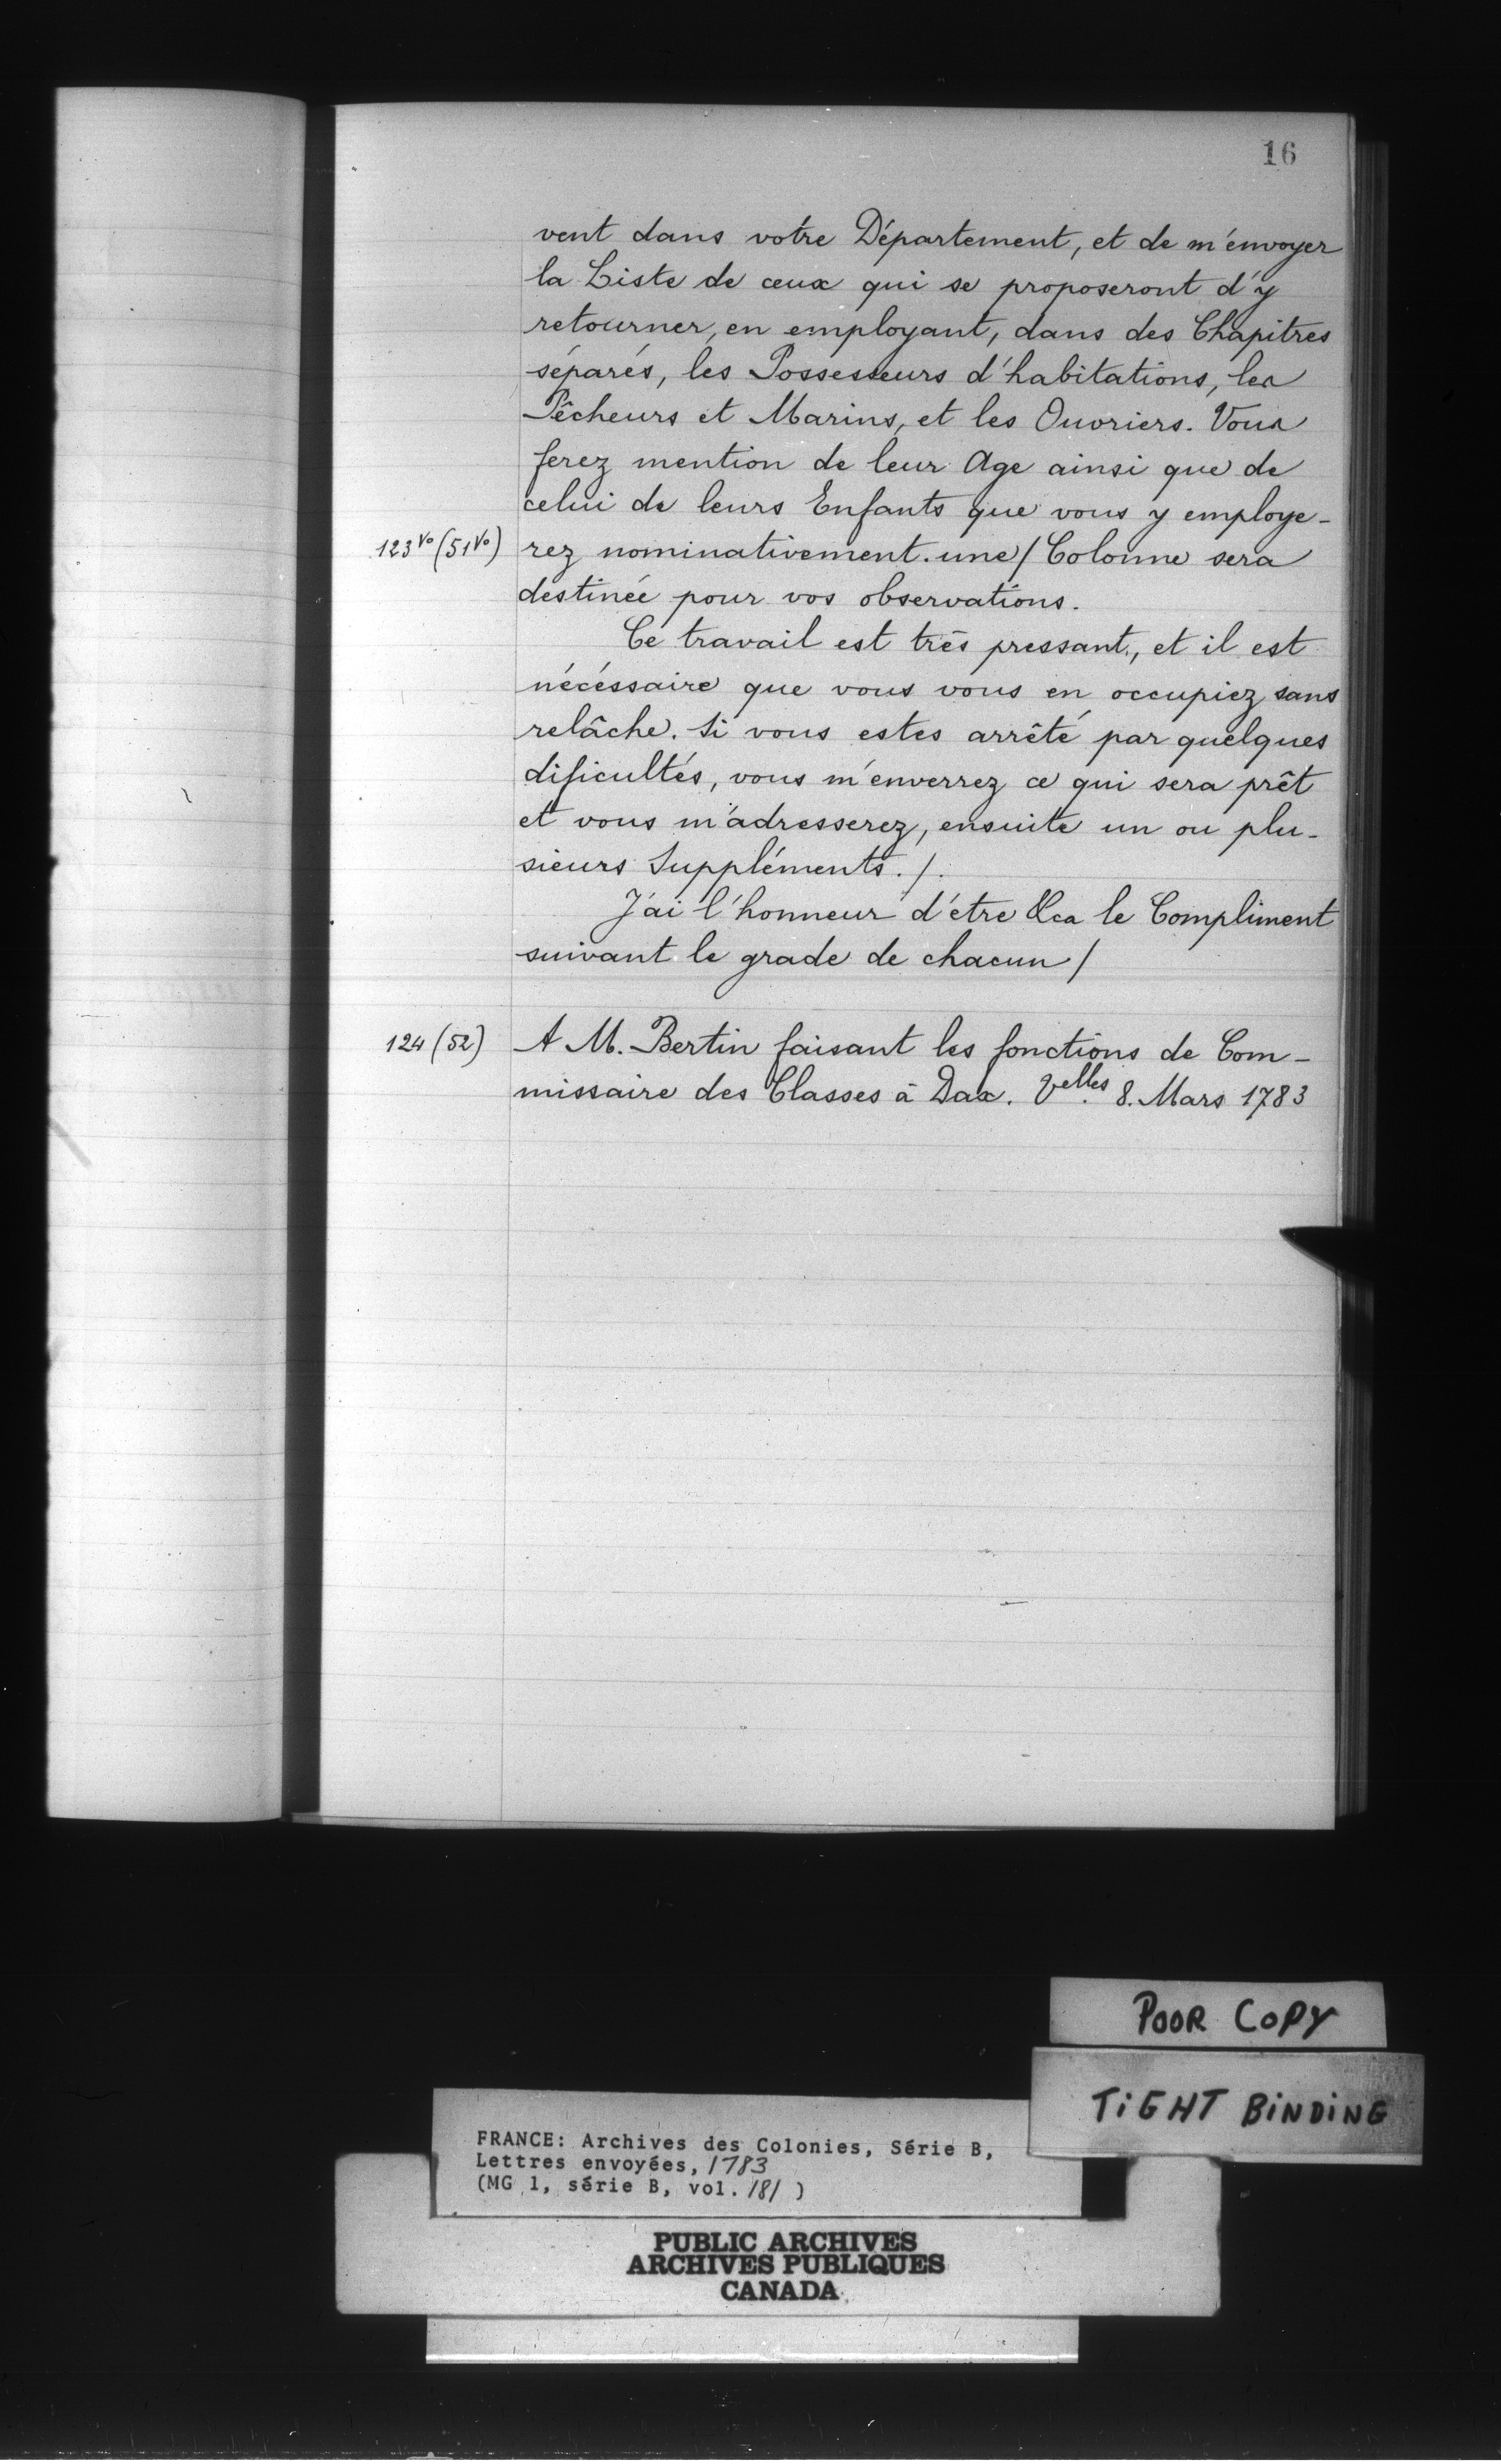 16
vent dans votre Département, et de m'envoyer
la Liste de ceux qui se proposeront d'y
retourner, en employant, dans des Chapitres
séparés, les Possesseurs d'habitations, les
Pêcheurs et Marins, et les Ouvriers. Vous
ferez mention de leur Age ainsi que de
celui de leurs Enfants que vous y employe-
123 Vo (51 Vo) rez nominativement. une / Colonne sera
destinée pour vos observations.
Ce travail est très pressant, et il est
nécéssaire que vous vous en occupiez sans
relâche. Si vous estes arrêté par quelques
dificultés, vous m'enverrez ce qui sera prêt
et vous m'adresserez, ensuite un ou plu-
sieurs Suppléments. /.
J'ai l'honneur d'etre &ca le Compliment
suivant le grade de chacun /
124 (52) A M. Bertin faisant les fonctions de Com-
missaire des Classes à Dax. Velles. 8. Mars 1783
POOR COPY
TIGHT BINDING
FRANCE: Archives des Colonies, Série B,
Lettres envoyées, 1783
(MG 1, série B, vol. 181 )
PUBLIC ARCHIVES
ARCHIVES PUBLIQUES
CANADA